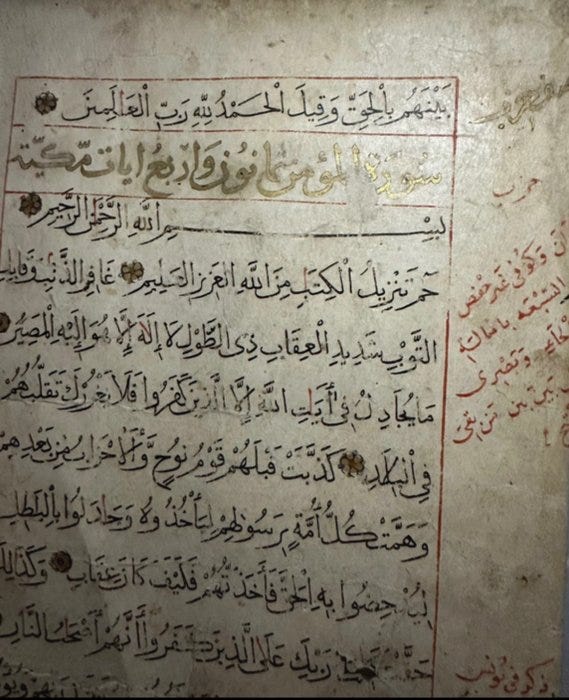 بَيْنَهُم بِالْحَقِّ وَقِيلَ الْحَمْدُ لِلَّهِ رَبِّ الْعَالَمِينَ
سورة المؤمن ثمانون واربع ايات مكية
بِسْمِ اللَّهِ الرَّحْمَنِ الرَّحِيمِ
حم تَنْزِيلُ الْكِتَبِ مِنَ اللَّهِ الْعَزِيزِ الْعَلِيمِ غَافِرِ الذَّنْبِ وَقَابِلِ
التَّوْبِ شَدِيدِ الْعِقَابِ ذِى الطَّوْلِ لَا إِلَهَ إِلَّا هُوَ إِلَيْهِ الْمَصِيرُ
مَا يُجَادِلُ فِى أَيَتِ اللَّهِ إِلَّا الَّذِينَ كَفَرُوا فَلَا يَغْرُرْكَ تَقَلُّبُهُمْ
فِى الْبِلَادِ كَذَّبَتْ قَبْلَهُمْ قَوْمُ نُوحٍ وَالْأَحْزَابُ مِنْ بَعْدِهِمْ
وَهَمَّتْ كُلُّ أُمَّةٍ بِرَسُولِهِمْ لِيَأْخُذُوهُ وَجَادَلُوا بِالْبَاطِلِ
لِيُدْحِضُوا بِهِ الْحَقَّ فَأَخَذْتُهُمْ فَكَيْفَ كَانَ عِقَابِ وَكَذَلِكَ
حَقَّتْ رَبِّكَ عَلَى الَّذِينَ كَفَرُوا أَنَّهُمْ أَصْحَبُ النَّارِ
حزب
وكوفى غير حفص
السبعة بامالة
الحاء وبصرى
بين بين